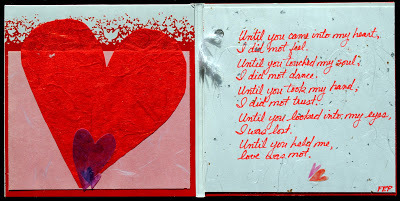 Until you came into my heart,
I did not feel.
Until you touched my soul,
I did not dance.
Until you took my hand,
I did not trust.
Until you looked into my eyes,
I was lost.
Until you held me,
love was not.
FEP